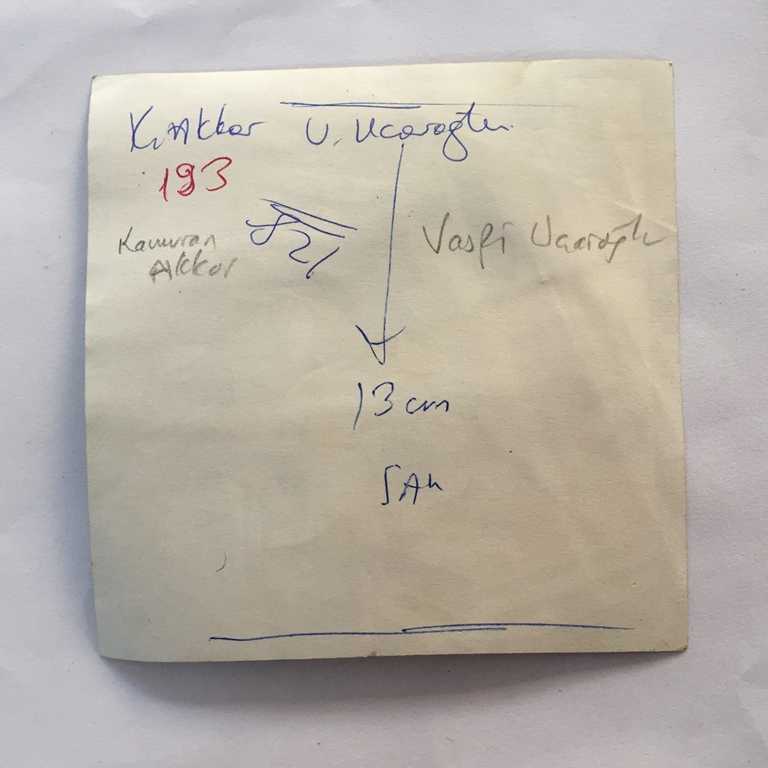 K. Akkor V. Ucaroğlu
193
21
Kamuran
Akkor
Vasfi Ucaroğlu
13 cm